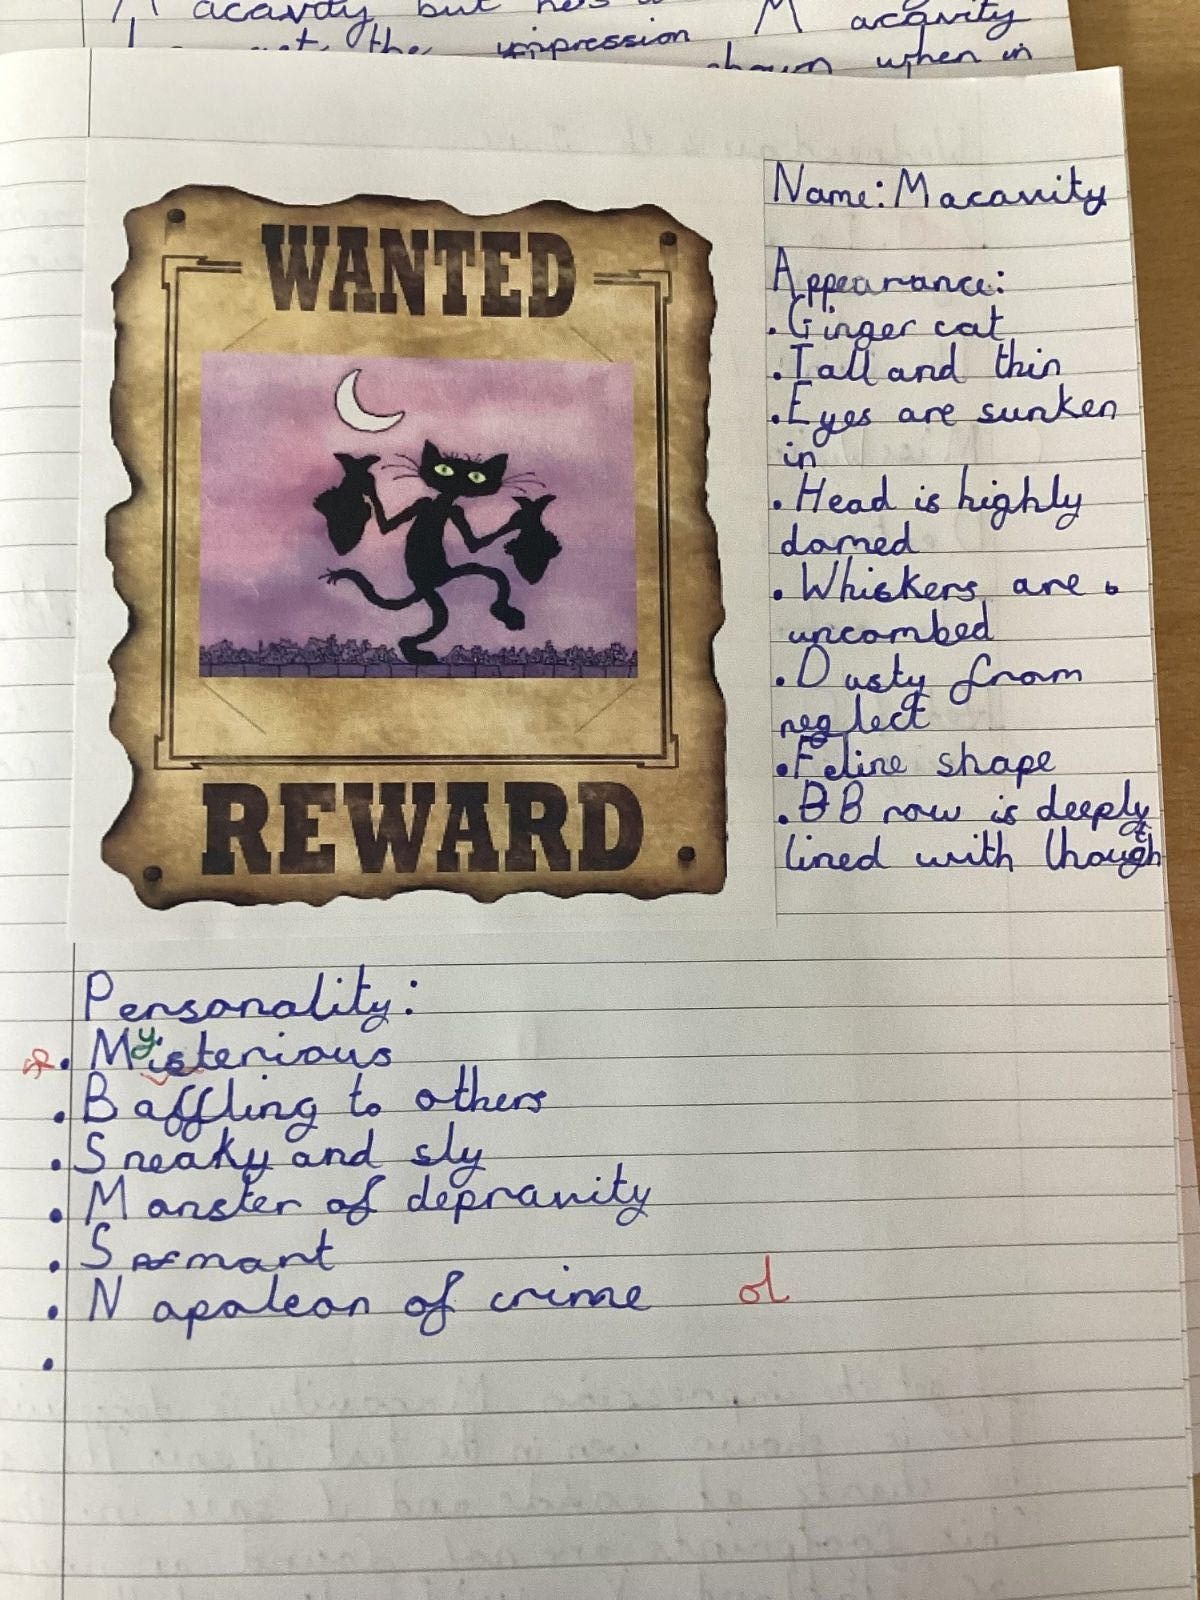 Macavity but he's
the impression Macavity
shown when in
WANTED
REWARD
Name: Macavity
Appearance:
. Ginger cat
. Tall and thin
. Eyes are sunken
in
. Head is highly
domed
. Whiskers are
uncombed
. Dusty from
neglect
. Feline shape
. B Brow is deeply
lined with though t
Personality:
. Mysterious
. Baffling to others
. Sneaky and sly
. Monster of depravity
. Napoleon of crime